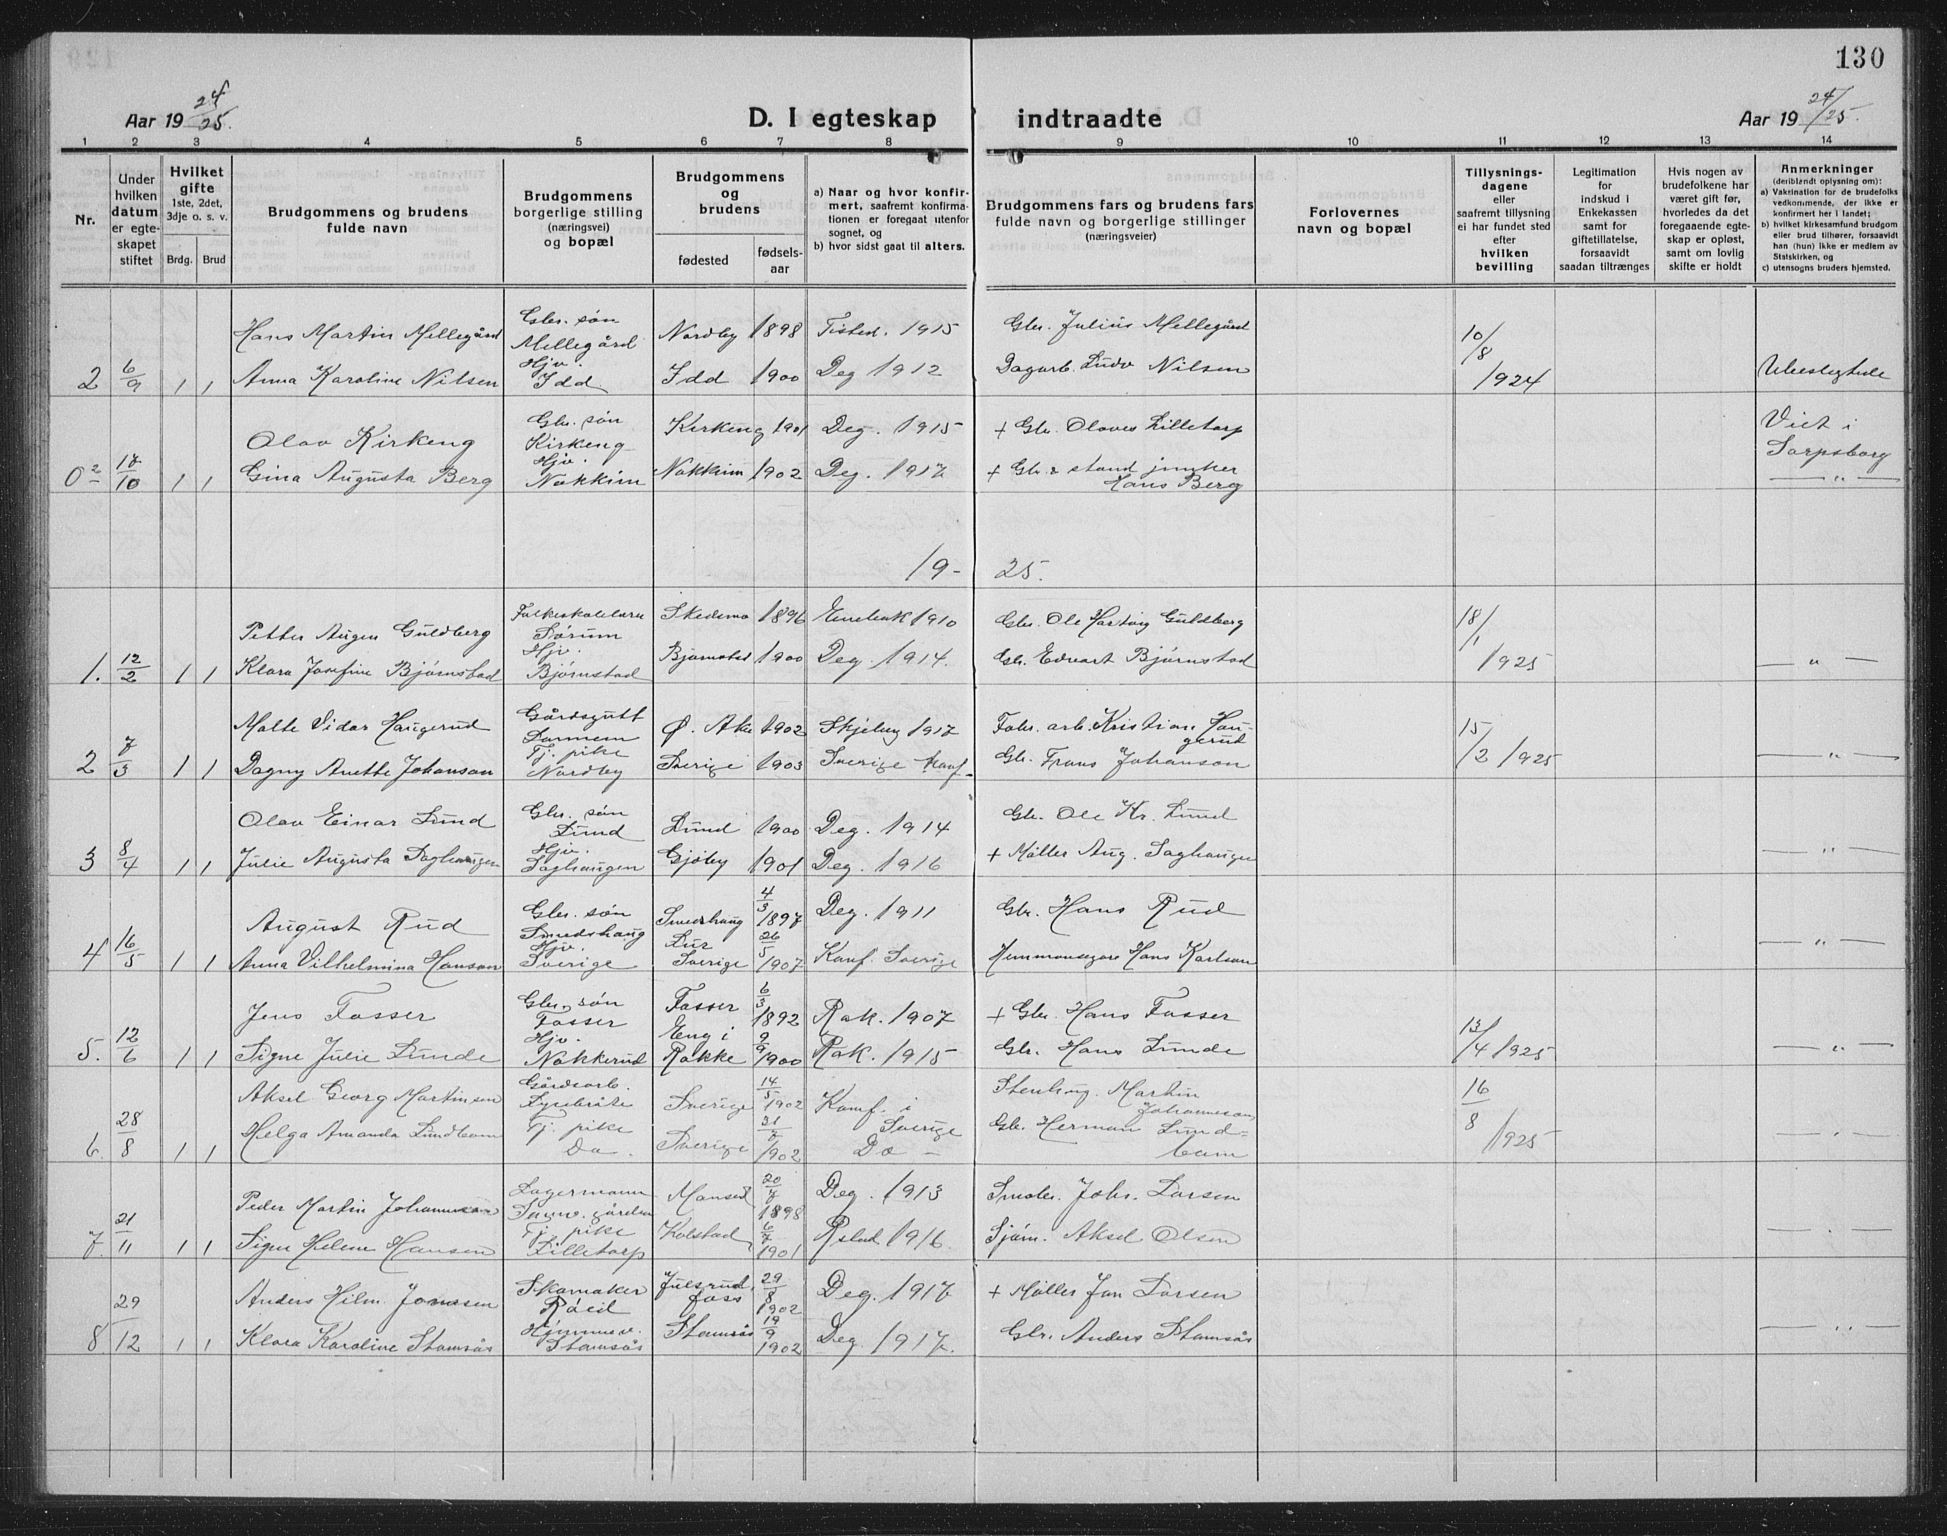 130
Aar 19 24/25.
D. I egteskap indtraadte
Aar 19 24/25.
1 2 3 4 5 6 7 8 9 10 11 12 13 14
Nr.
Under hvilken datum er egte-skapet stiftet
Hvilket gifte 1ste, 2det, 3dje o. s. v.
Brdg. Brud
Brudgommens og brudens fulde navn
Brudgommens borgerlige stilling (næringsvei) og bopæl
Brudgommens og brudens
fødested
fødsels-aar
a) Naar og hvor konfir-mert, saafremt konfirma-tionen er foregaat utenfor sognet, og
b) hvor sidst gaat til alters.
Brudgommens fars og brudens fars fulde navn og borgerlige stillinger (næringsveier)
Forlovernes navn og bopæl
Tillysnings-dagene eller saafremt tillysning ei har fundet sted efter hvilken bevilling
Legitimation for indskud i Enkekassen samt for giftetillatelse, forsaavidt saadan tiltrænges
Hvis nogen av brudefolkene har været gift før, hvorledes da det foregaaende egte-skap er opløst, samt om lovlig skifte er holdt
Anmerkninger (deriblandt oplysning om):
a) Vaktination for de brudefolks vedkommende, der ikke er konfirmert her i landet;
b) hvilket kirkesamfund brudgom eller brud tilhører, forsaavidt han (hun) ikke er medlem av Statskirken, og
c) utensogns bruders hjemsted.
Hans Martin Mellegård Gbr. søn Mellegård Nordby 1898 Tisted. 1915 Gbr. Julius Mellegård 10/8
2 6/9 1 1 Anna Karoline Nilsen Hjv. Idd Idd 1900 Deg 1912 Dagarb. Ludv Nilsen 1924
Olav Kirkeng Gbr. søn Kirkeng Kirkeng 1901 Deg. 1915 + Gbr. Olaves Lilletorp Viet i Sarpsborg
02 17/10 1 1 Gina Augusta Berg Hjv. Nokkim Nokkim 1902 Deg. 1917 + Gbr. & stand junker Hans Berg — " —
19- 25.
Petter Augen Guldberg Folkeskolelærer Sørum Skedsmo 1896 Enebak 1910 Gbr. Ole Hartvig Guldberg 18/1
1. 12/2 1 1 Klara Josefine Bjørnstad Hjv. Bjørnstad Bjørnstad 1900 Deg. 1914. Gbr. Edvart Bjørnstad 1925 — " —
Malte Vidar Haugerud Gårdsgutt Ø. Ake 1902 Skjeberg 1917 Fabr. arb. Kristian Haugerud 15/2 1925
2 7/3 1 1 Dagny Anette Johanson Tj. pike Nordby Sverige 1903 Sverige Konf. Gbr. Frans Johanson — " —
Olav Einar Lund Gbr. søn Lund Lund 1900 Deg. 1914 Gbr. Ole Kr. Lund
3 8/4 1 1 Julie Augusta Saghaugen Hjv. Saghaugen Gjøby 1901 Deg. 1916 + Møller Aug. Saghaugen — " —
August Rud Gbr. søn Smedshaug Smedshaug 4/3 1897 Deg. 1911 Gbr. Hans Rud
4 16/5 1 1 Anna Vilhelmina Hanson Hjv. Sverige Lur Sverige 26/5 1907 Konf. Sverige Hemmansegare Hans Karlson — " —
Jens Fosser Gbr. søn Fosser Fosser 6/3 1892 Rak. 1907 + Gbr. Hans Fosser 13/4 1925
5. 12/6 1 1 Signe Julie Lunde Hjv. Nokkerud Eng i Rakke 9/9 1900 Rak. 1915 Gbr. Hans Lunde — " —
Aksel Georg Martinsen Gårdsarb. Lysebråte Sverige 14/5 1902 Konf. i Sverige Stenhug. Martin Johanneson, 16/8 1925
6. 28/8 1 1 Helga Amanda Lundbom Tj. pike Do. Sverige 31/7 1902 Do — Gbr. Herman Lund=bom — " —
Peder Martin Johannesen Lagermann 20/7 1898 Deg. 1913 Smabr. Johs. Larsen
7. 21/11 1 1 Signe Helene Hansen Tj. pike Lilletorp Kolstad 6/7 1901 1916. Sjøm. Aksel Olsen
Anders Hilm. Jonassen Skomaker Julsrud foss 29/8 1902 Deg. 1917 + Møller Jon Larsen
8 29/12 1 1 Klara Karoline Stomsås Stomsås Stomsås 19/9 1902 Deg 1917. Gbr. Anders Stomsås — " —